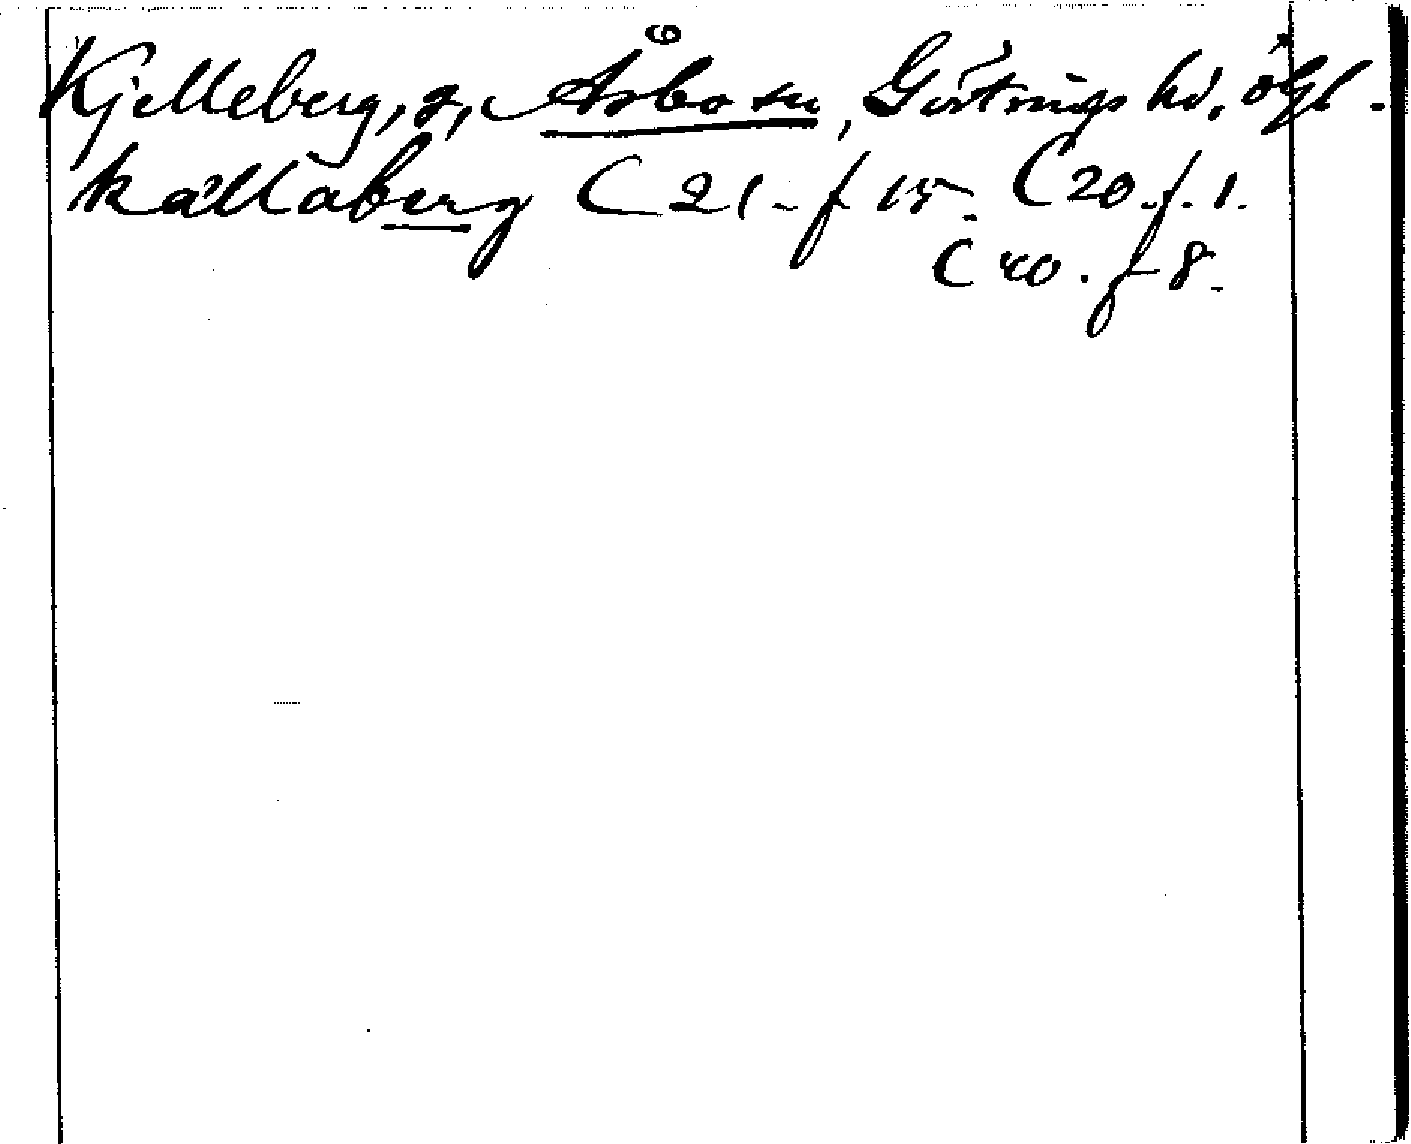 Kjelleberg, g, Åsbo sn, Göstrings hd, Ögl.
källaberg C 21 - f 15. C 20. f. 1.
C 40. f 8.